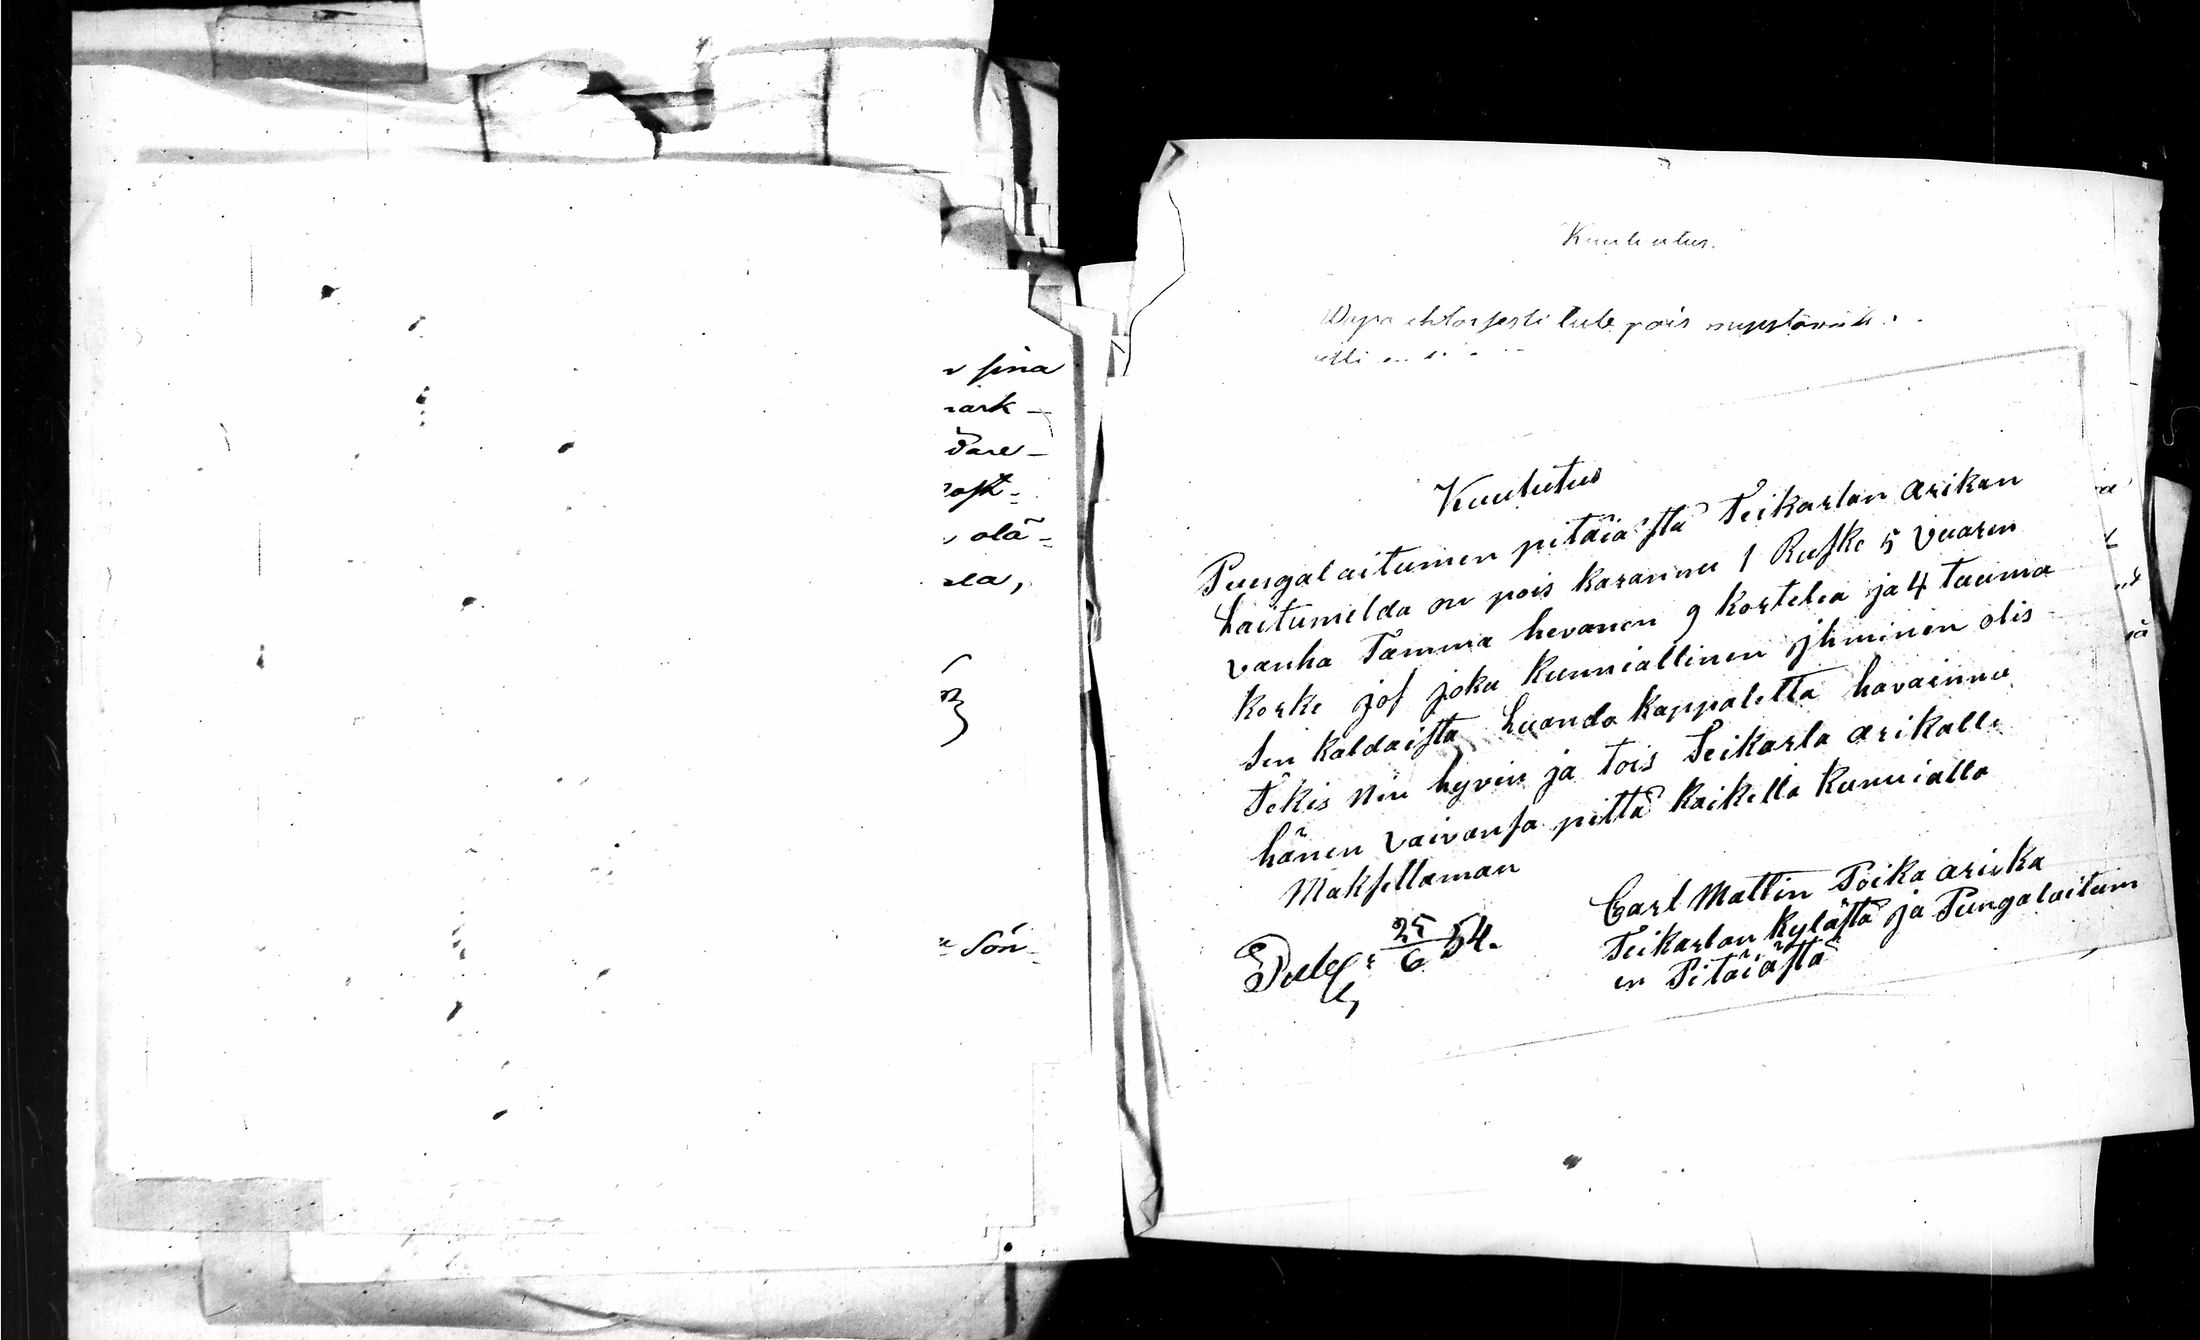 sina
ark-
dare-
olä-
la,
Sön-
Kuulutus.
Wapa ehtoisesti tule pois myytäväk
Kuulutus
Pungalaitumen pitäiästä Teikarlan arikan
Laitumelda on pois karannu 1 Ruske 5 Vuaren
vanha Tamma hevanen 9 kortelia ja 4 tuuma
korke jos joku kunniallinen jhminen olis
sen kaldaista Luondo kappaletta havainnu
Tekis niin hyvin ja tois Teikarla arikalle
hänen vaivansa pittä kaikella kunnialla
Maksettaman
25/6 54.
Carl Mattin Poika arikka
Teikarlan kylästä ja Pungalaitum
en Pitäiästä